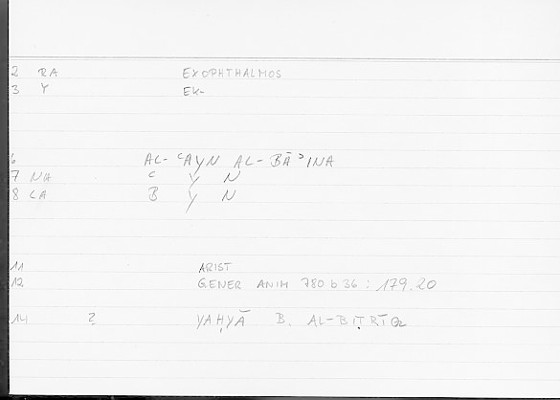 2 RA EXOPHTHALMOS
3 Y EK-
6 AL-ʿAYN AL-BĀʾINA
7 NA ʿ Y N
8 LA B Y N
11 ARIST
12 GENER ANIM 780 b 36 : 179.20
14 ? YAḤYĀ B. AL-BIṬRĪQ